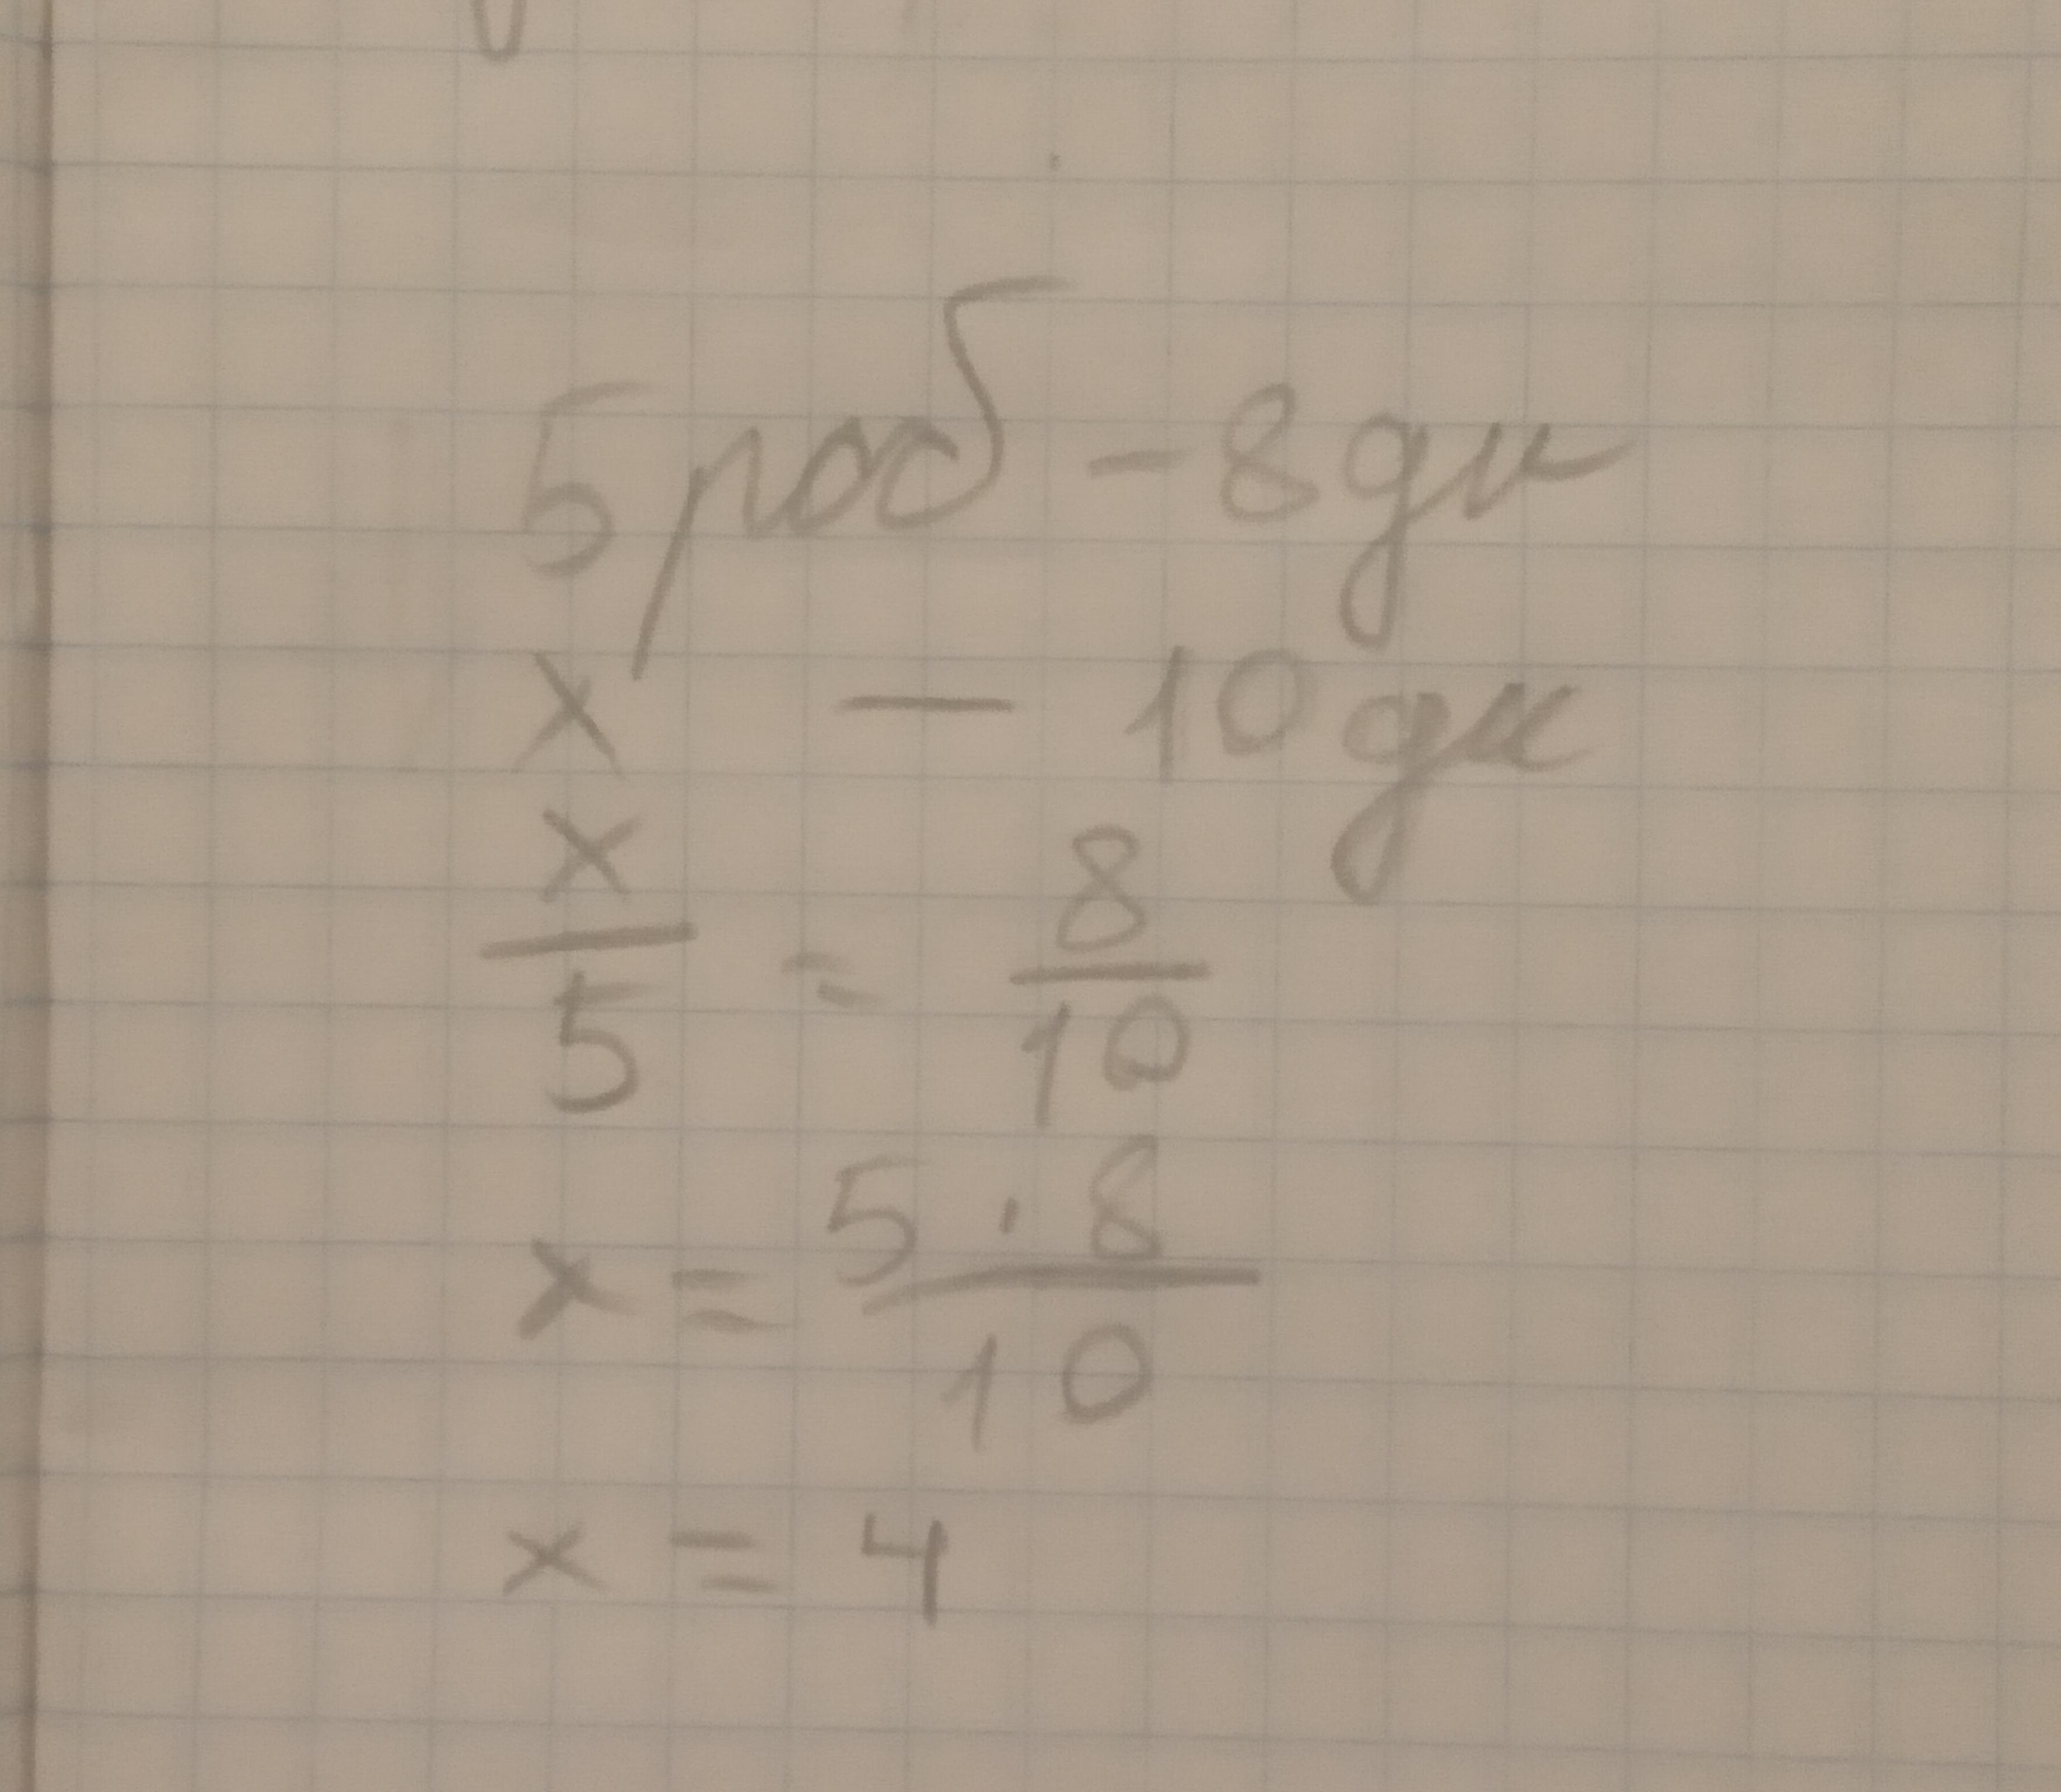 5 роб - 8 дн
x — 10 дн
x/5 = 8/10
x = 5 · 8/10
x = 4